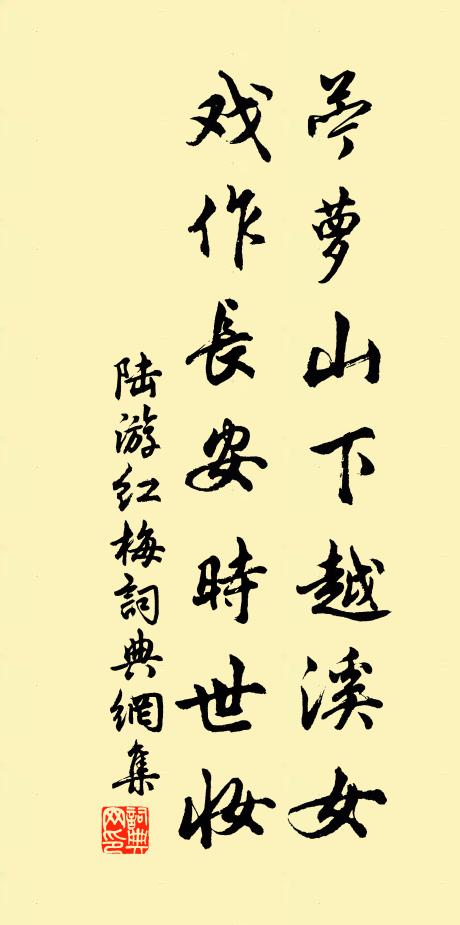 苎萝山下越溪女
戏作長安時世妆
陆游红梅詞典網集
詞典
网印